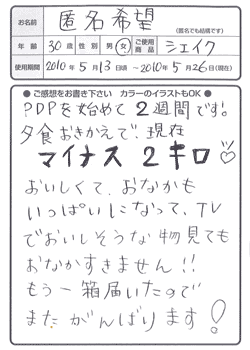 お名前 匿名希望 (匿名でも結構です)
年齢 30歳 性別 男・女 ご使用商品 シェイク
使用期間 2010年5月13日頃 ~ 2010年5月26日(現在)
●ご感想をお書き下さい カラーのイラストもOK●
PDPを始めて2週間です!
夕食おきかえで、現在
マイナス2キロ♡
おいしくて、おなかも
いっぱいになって、TV
でおいしそうな物見ても
おなかすきません!!
もう一箱届いたので
またがんばります!